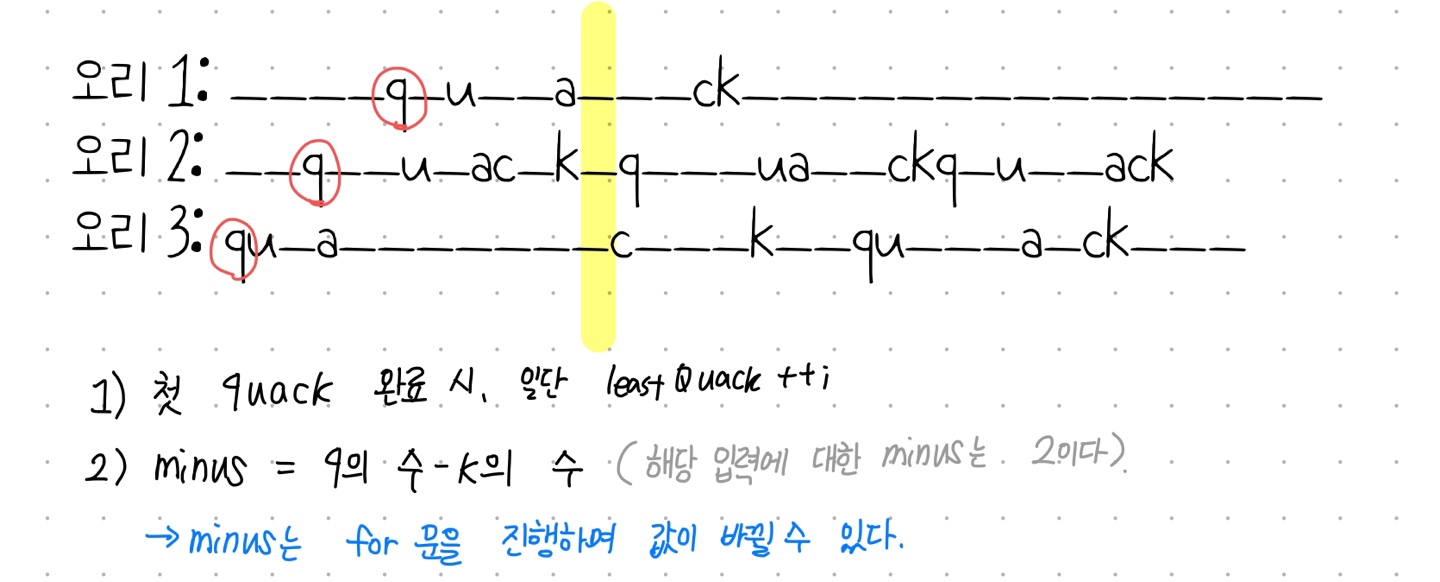 오리 1: ____q_u__a___ck_______________
오리 2: __q__u_ac_k_q___ua__ckq_u__ack
오리 3: qu_a_______c___k__qu___a_ck___
1) 첫 quack 완료 시, 일단 leastQuack ++;
2) minus = q의 수-k의 수 (해당 입력에 대한 minus는 2이다).
→minus는 for 문을 진행하며 값이 바뀔 수 있다.